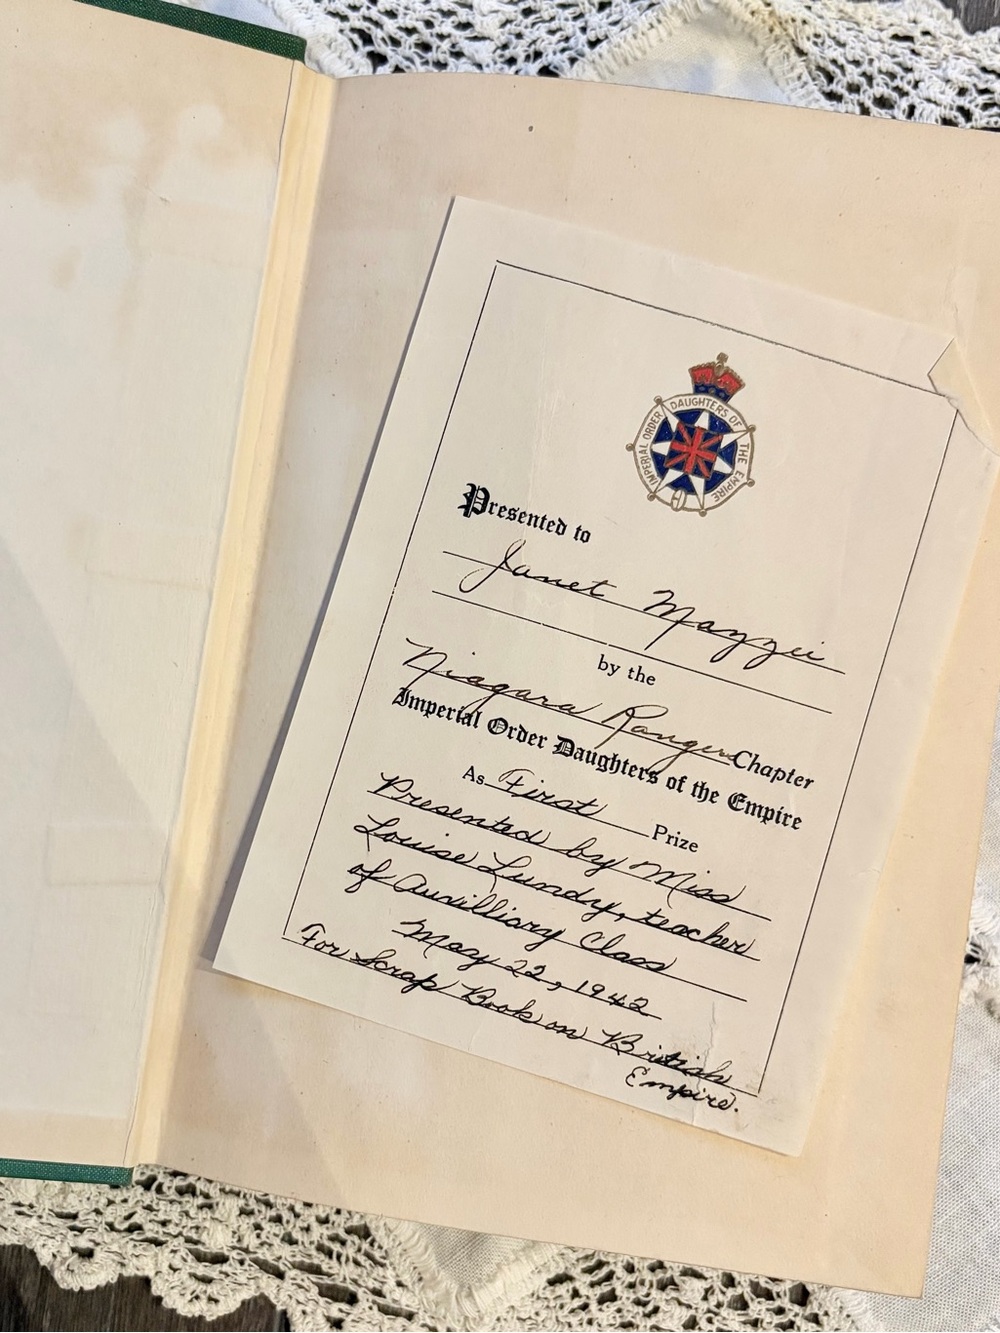 IMPERIAL ORDER DAUGHTERS OF THE EMPIRE
Presented to
Janet Mazzei
by the
Niagara Rangers Chapter
Imperial Order Daughters of the Empire
As First Prize
Presented by Miss
Louise Lundy, teacher
of Auxilliary Class
May 22, 1942
For Scrap Book on British
Empire.